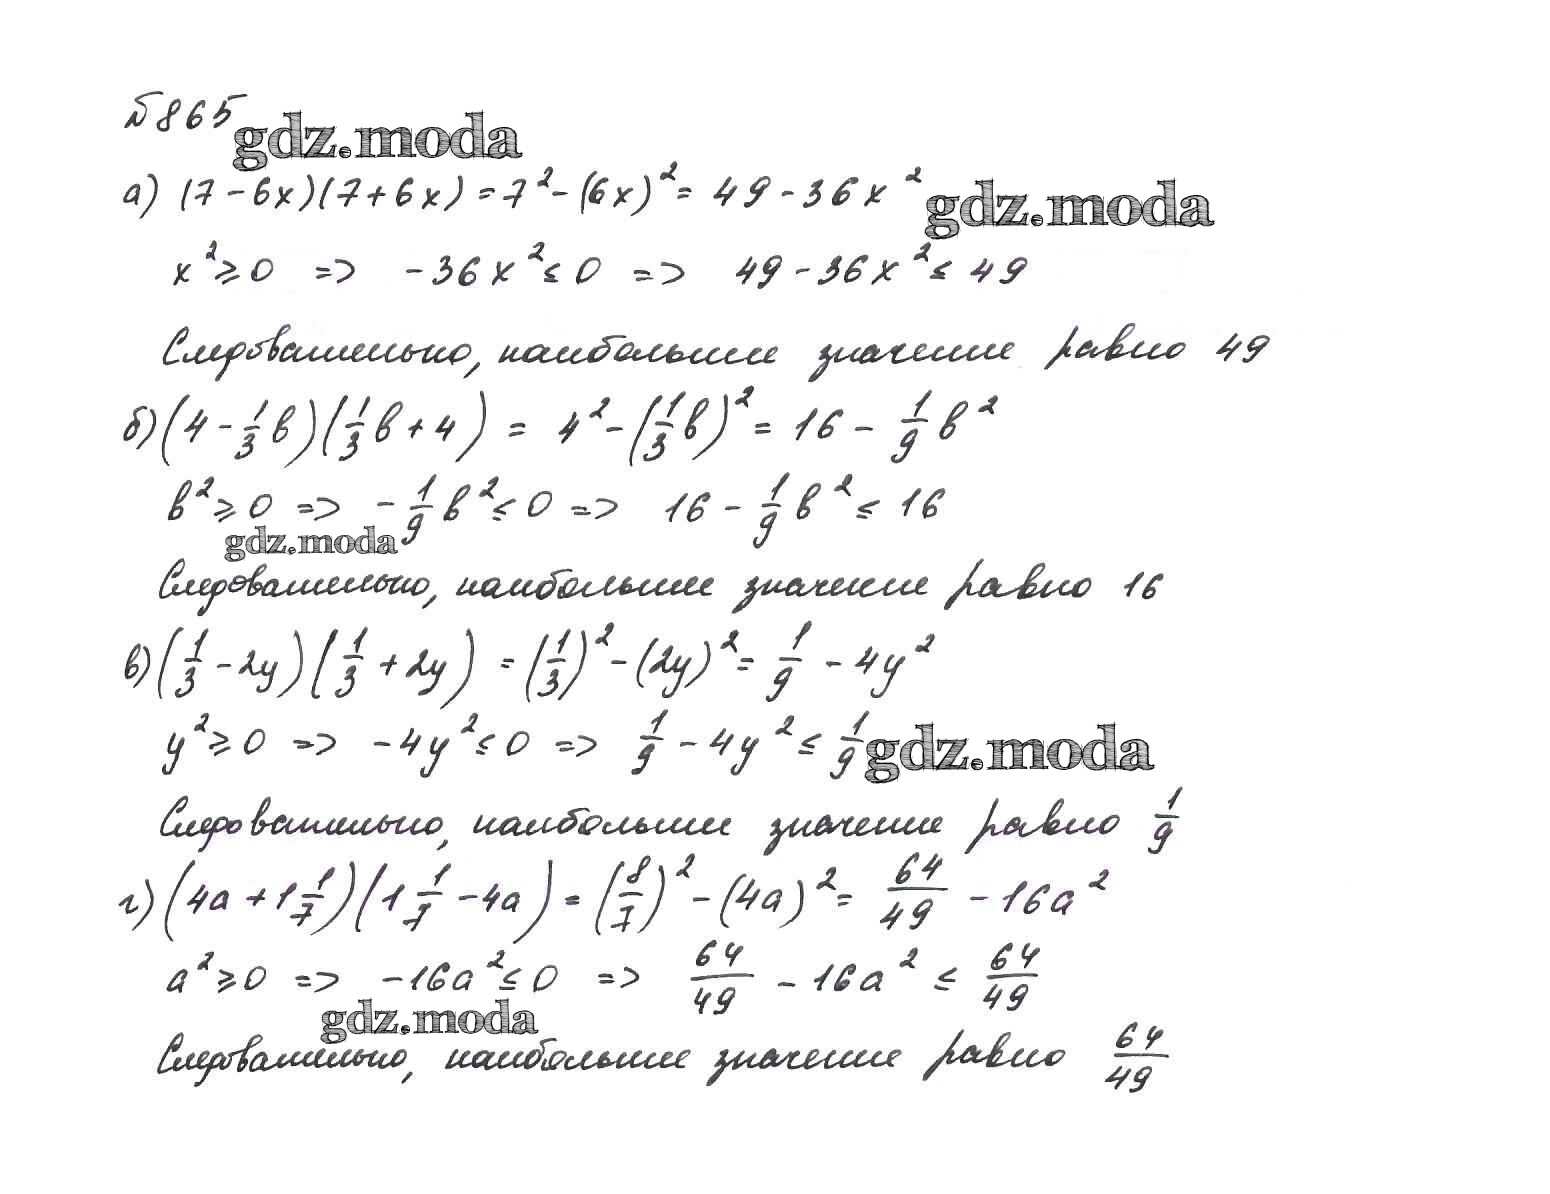 №865
gdz.moda
а) (7 - 6x)(7 + 6x) = 7² - (6x)² = 49 - 36x²
gdz.moda
x² ≥ 0 => -36x² ≤ 0 => 49 - 36x² ≤ 49
Следовательно, наибольшее значение равно 49
б) (4 - 1/3 b)(1/3 b + 4) = 4² - (1/3 b)² = 16 - 1/9 b²
b² ≥ 0 => -1/9 b² ≤ 0 => 16 - 1/9 b² ≤ 16
gdz.moda
Следовательно, наибольшее значение равно 16
в) (1/3 - 2y)(1/3 + 2y) = (1/3)² - (2y)² = 1/9 - 4y²
y² ≥ 0 => -4y² ≤ 0 => 1/9 - 4y² ≤ 1/9
gdz.moda
Следовательно, наибольшее значение равно 1/9
г) (4a + 1 1/7)(1 1/7 - 4a) = (8/7)² - (4a)² = 64/49 - 16a²
a² ≥ 0 => -16a² ≤ 0 => 64/49 - 16a² ≤ 64/49
gdz.moda
Следовательно, наибольшее значение равно 64/49